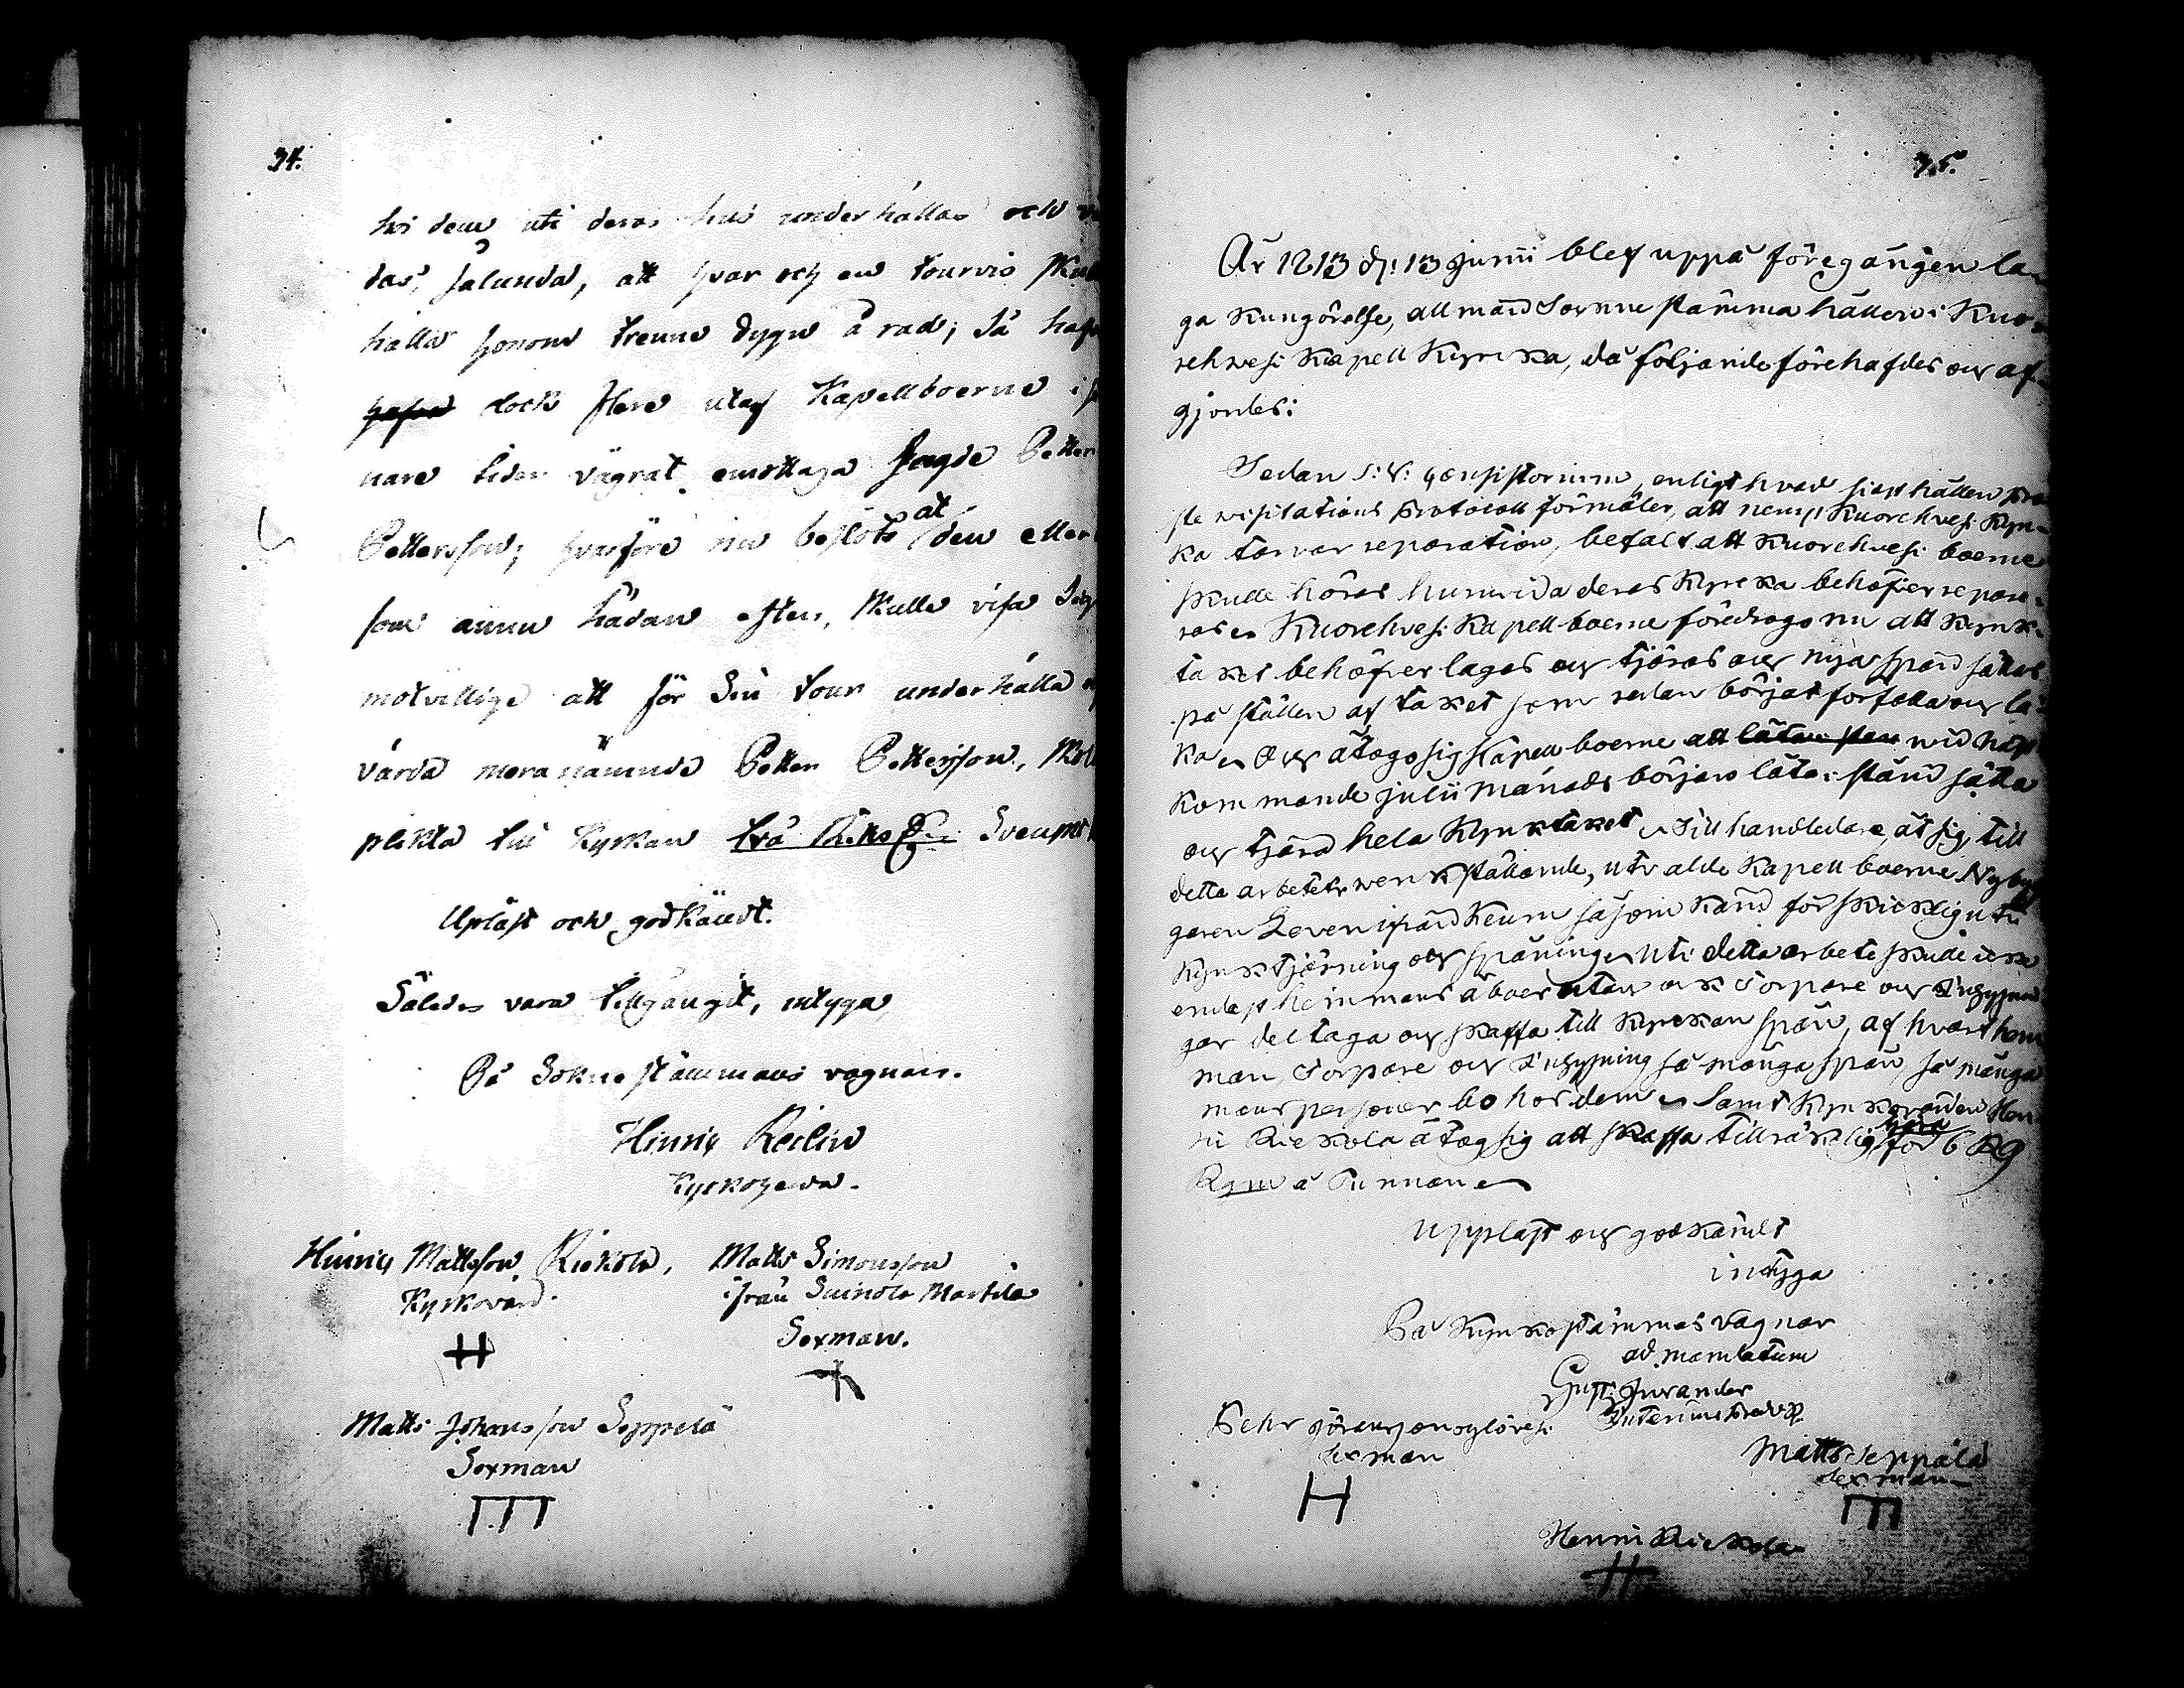 34.
hos dem uti deras hus underhållas och
das, sålunda, att hvar och en tourvis skulle
hålla honom trenne dygn å rad; så haf
hafva dock flere utaf Kapellboerne i se
nare tider vägrat emottaga sagde Petter
Pettersson; hvarföre nu beslöts at den eller
som ännu hädan efter, skulle visa sig
motvillige att för sin tour underhålla
vårda meranämnde Petter Pettersson, skola
plikta till Kyrkan två Riksd. Svenskt
Upläst och godkändt.
Således vara tillgångit, intyga
På Sokne stämmans vägnar.
Hinric Relin
Kyrkoherde.
Hinric Mattsson Riekola, Matts Simonsson
Kyrkovärd. ifrån Suinola Marttila
Sexman.
Matts Johansson Seppelä
Sexman
35.
År 1813 d: 13 Junii blef uppå föregången la
ga Kungörelse, allmän Sockne stämma hållen i Kuo
rehvesi Kapell Kyrcka, då följande förehafdes och af
gjordes:
Sedan S: V: Consistorium, enligt hvad sist hållen Pro
ste visitations Protocoll förmäler, att neml Kuorehvesi Kyr
ka tarvar reparation, befalt att Kuorehvesi boerne
skulle höras huruvida deras Kyrcka behöfver repare
ras. Kuorehvesi Kapellboerne föredrogo nu att Kyrck
taket behöfver lagas och tjäras och nya spån sättas
på ställen af taket som redan börjat förfalla och lä
ka. Och åtogo sig Kapellboerne att låta i stån vid näst
kommande julii månads början låta i stånd sätta
och tjära hela Kyrcktaket. Till handledare, åt sig, till
detta arbetets verckställande, utvalde Kapellboerne Nybyg
garen Leven ifrån Keuru såsom känd för skicklig uti
Kyrcktjärning och spåning. Uti detta arbete skulle icke
endast hemmans åboer utan ock Torpare och Inhysnin
gar deltaga och skaffa till Kyrckan spån, af hvart hem
man, Torpare och Inhysning så många spån, så många
mans personer bo hos dem. Samt Kyrckovärden Hen
ric Riekola åtog sig att skaffa tillräcklig tjära för 6 R
Rgm å Tunnan.
Uppläst och godkändt
intyga
På Kyrckostämmas vägnar
ad mandatum
Gust. Jurander
Interims
Sexman
Matts Seppälä
Sexman
Henric Riekola